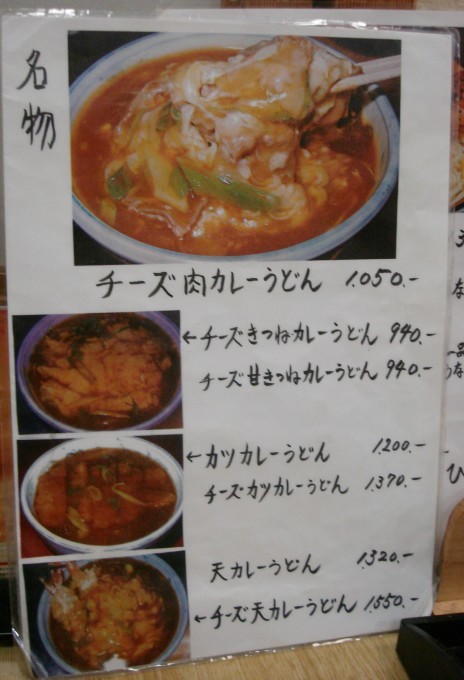 名物
チーズ肉カレーうどん 1.050.-
←チーズきつねカレーうどん 940.-
チーズ甘きつねカレーうどん 940.-
←カツカレーうどん 1.200.-
チーズカツカレーうどん 1.370.-
天カレーうどん 1.320.-
←チーズ天カレーうどん 1.550.-